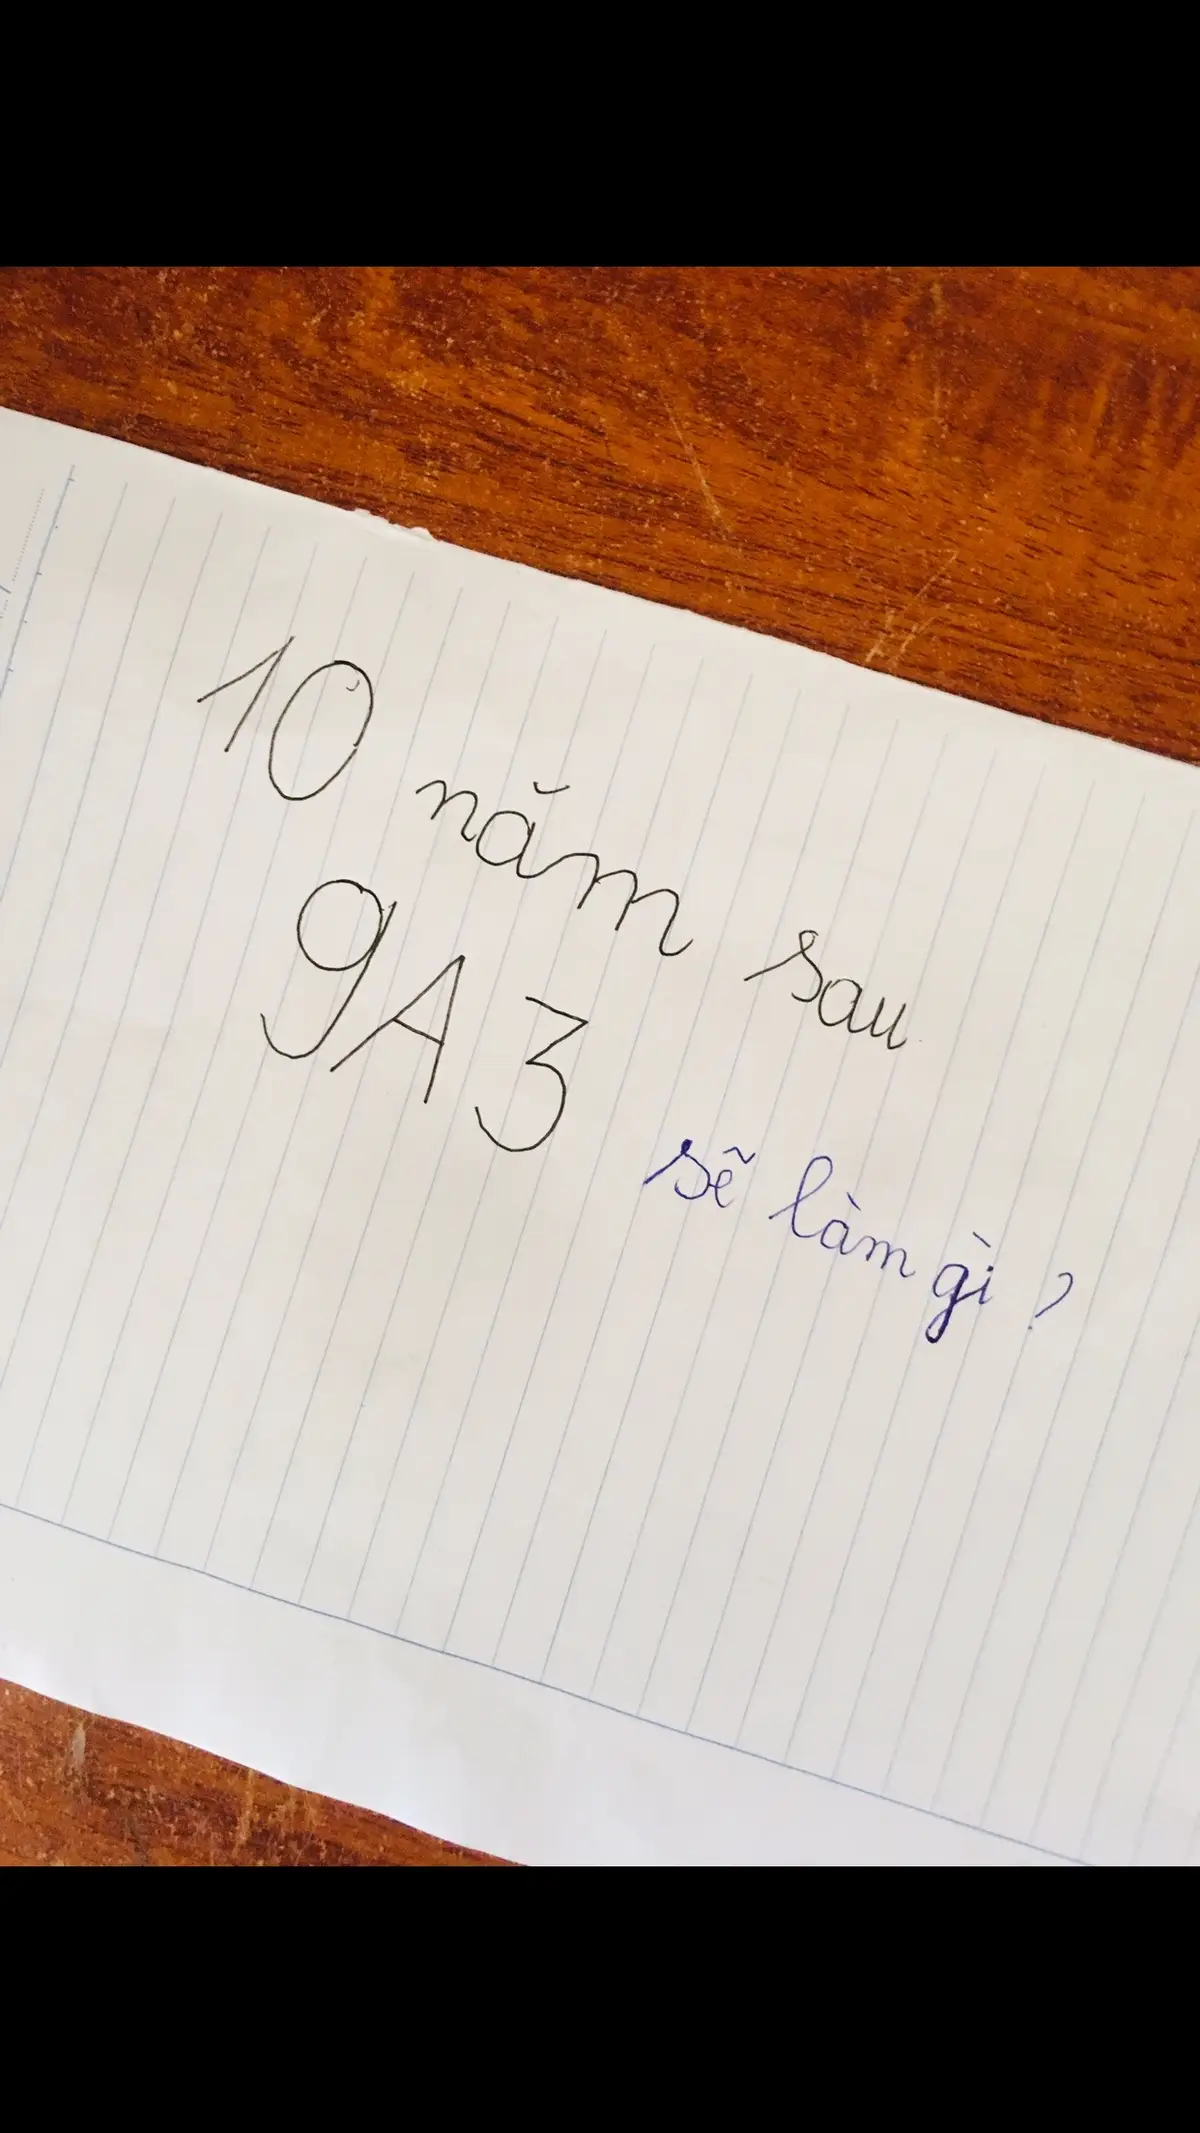 10 năm sau
9A3 sẽ làm gì ?